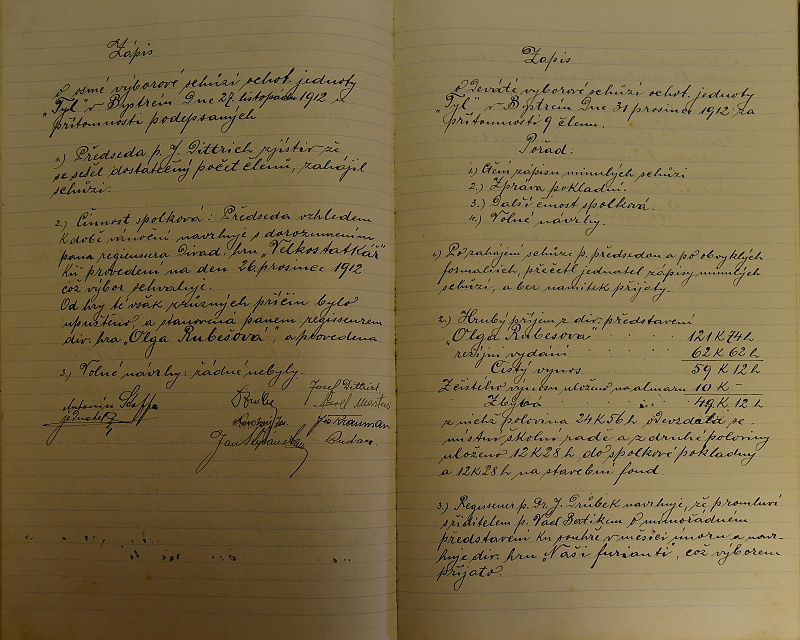 Zápis
o osmé výborové schůzi ochot. jednoty
„Tyl" v Bystrém Dne 27. listopadu 1912 v
přítomnosti podepsaných
1.) Předseda p. J. Dittrich zjistiv že
se sešel dostatečný počet členů, zahájil
schůzi.
2.) Činnost spolková: Předseda vzhledem
k době vánoční navrhuje s dorozuměním
pana regiensera Divad. hru „Velkostatkář"
ku provedení na den 26. prosince 1912
což výbor schvaluje.
Od hry té však různých příčin bylo
upuštěno, a stanovena panem regisseurem
div. hra „Olga Rubešova", a provedena.
3.) Volné návrhy: žádné nebyly.
Josef Dittrich
Antonín
jednatel
Jan
Zápis
o deváté výborové schůzi ochot. jednoty
„Tyl" v Bystrém Dne 31 prosince 1912 za
přítomnosti 9 členu.
Pořad:
1.) Čtení zápisu minulých schůzi
2.) Zpráva pokladní.
3.) Další činost spolková.
4.) Volné návrhy.
1.) Po zahájení schůze p. předsedou a po obvyklých
formaliích, přečetl jednatel zápisy minulých
schůzí, a bez namitek přijaty.
2.) Hrubý příjem z div. představení
„Olga Rubešova" 121 K 74 h
režijní vydání 62 K 62 h
Čistý vynos 59 K 12 h
Z čistého výnosu uloženo na almaru 10 K -
Zbývá 49 K. 12 h
z nichž polovina 24 K 56 h odevzdata se
místní školní radě a z druhé poloviny
uloženo 12 K 28 h do spolkové pokladny
a 12 K 28 h na stavební fond
3.) Regisseur p. Fr. J. Drůbek navrhuje, že promluví
s řiditelem p. Vád Batikem o mimořádném
představení ku souhře v měsíci únoru a navr-
huje div. hru „Naši furianti", což výborem
přijato.